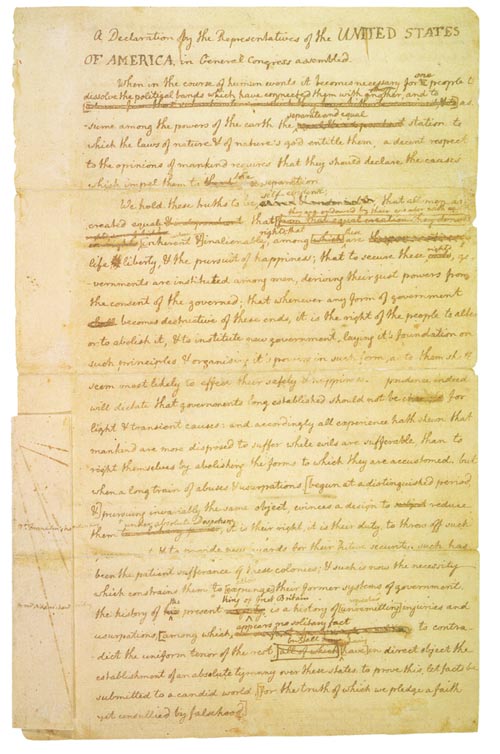 A Declaration by the Representatives of the UNITED STATES
OF AMERICA, in General Congress assembled.
When in the course of human events it becomes necessary for one people to
dissolve the political bands which have connected them with another, and to as-
separate and equal
-sume among the powers of the earth the station to
which the laws of nature & of nature's god entitle them, a decent respect
to the opinions of mankind requires that they should declare the causes
which impel them to the separation.
self-evident
We hold these truths to be that all men are
they are endowed by their creator with
created equal that
rights; that these
inherent & inalienable among which are
life, liberty, & the pursuit of happiness; that to secure these rights, go-
-vernments are instituted among men, deriving their just powers from
the consent of the governed; that whenever any form of government
becomes destructive of these ends, it is the right of the people to alter
or to abolish it, & to institute new government, laying it's foundation on
such principles & organising it's powers in such form, as to them shall
seem most likely to effect their safety & happiness. prudence indeed
will dictate that governments long established should not be changed for
light & transient causes: and accordingly all experience hath shewn that
mankind are more disposed to suffer while evils are sufferable, than to
right themselves by abolishing the forms to which they are accustomed. but
when a long train of abuses & usurpations [begun at a distinguished period
&] pursuing invariably the same object, evinces a design to reduce
under absolute Despotism
them it is their right, it is their duty, to throw off such
& to provide new guards for their future security. such has
been the patient sufferance of these colonies; & such is now the necessity
which constrains them to [expunge] their former systems of government.
the king of Great Britain
the history of present is a history of [unremitting] injuries and
appears no solitary fact
usurpations, [among which, to contra-
-dict the uniform tenor of the rest, all of which] have in direct object the
establishment of an absolute tyranny over these states. to prove this, let facts be
submitted to a candid world, [for the truth of which we pledge a faith
yet unsullied by falsehood]